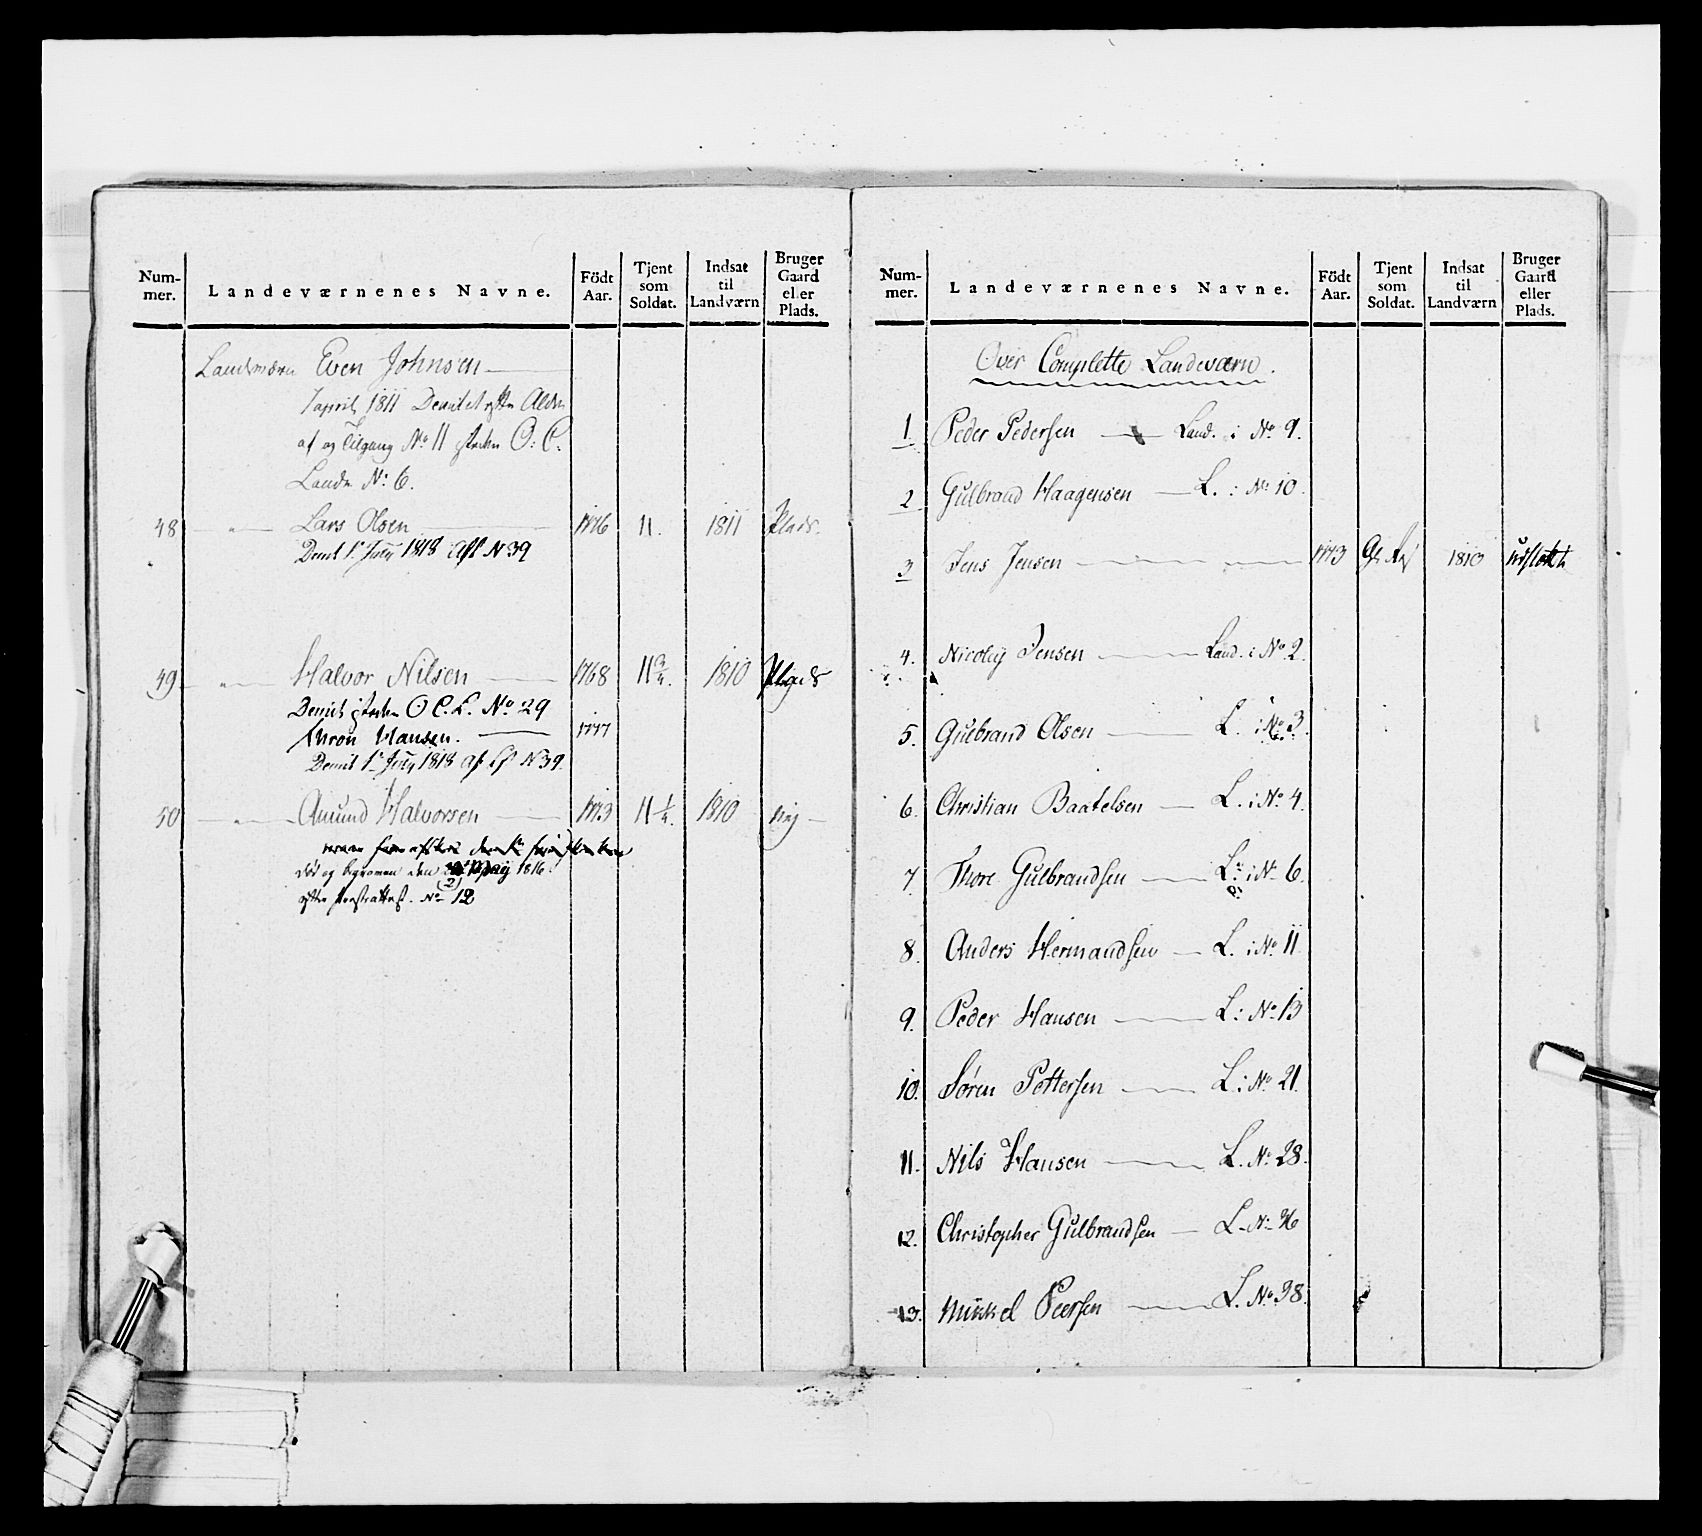 Num-
mer.
Landeværnenes Navne.
Födt
Aar.
Tjent
som
Soldat.
Indsat
til
Landværn
Bruger
Gaard
eller
Plads.
Landværn Even Johnsen
april 1811 Demitet efter Alder
af og Tilgang No 11 O: C.
Lands No: 6.
48 " Lars Olsen 1776 11. 1811 Plads.
Demt 1. July 1818 No 39
49 " Halvor Nilsen 1768 11 3/4. 1810 Plads
Demit O C. L. No 29
Thron Hansen. 1777
Demit 1. July 1818 No 39.
50 " Amund Halvorsen 1773 11 1/4. 1810 nej
død og begraven den Maij 1816
(2)
efter No 12
Num-
mer.
Landeværnenes Navne.
Födt
Aar.
Tjent
som
Soldat.
Indsat
til
Landværn
Bruger
Gaard
eller
Plads.
Over Complette Landeværn.
1. Peder Pedersen Land. i No 9.
2. Gulbrand Haagensen L. i No 10.
3. Jens Jensen 1773 1810
4. Nicolaj Jensen Land. i No 2.
5. Gulbrand Olsen L. i No 3.
6. Christian Baatelsen L. i No 4.
7. Thore Gulbrandsen L. i No 6.
8. Anders Hermandsen L. i No 11.
9. Peder Hansen L: No 13
10. Søren Pettersen L: No 21.
11. Nils Hansen L. No 28.
12. Christopher Gulbrandsen L. No 36
13. Mikkel Peersen L. No 38.